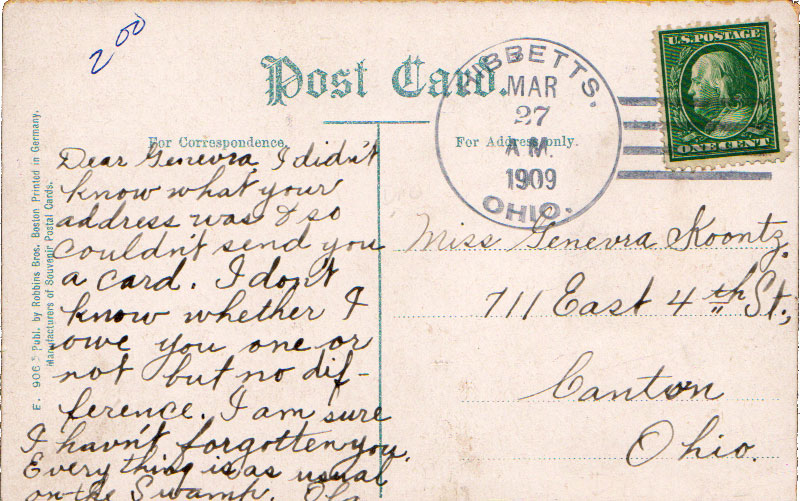 2.00
Post Card.
HIBBETTS.
MAR
27
A.M.
1909
OHIO.
U.S. POSTAGE
ONE CENT
For Correspondence.
For Address only.
E. 906. Publ. by Robbins Bros. Boston Printed in Germany.
Manufacturers of Souvenir Postal Cards.
Dear Genevra, I didn't
know what your
address was & so
couldn't send you
a card. I don't
know whether I
owe you one or
not but no dif-
ference. I am sure
I havn't forgotten you.
Everything is as usual
on the Swamp.
Miss Genevra Koontz,
711 East 4th St.,
Canton
Ohio.